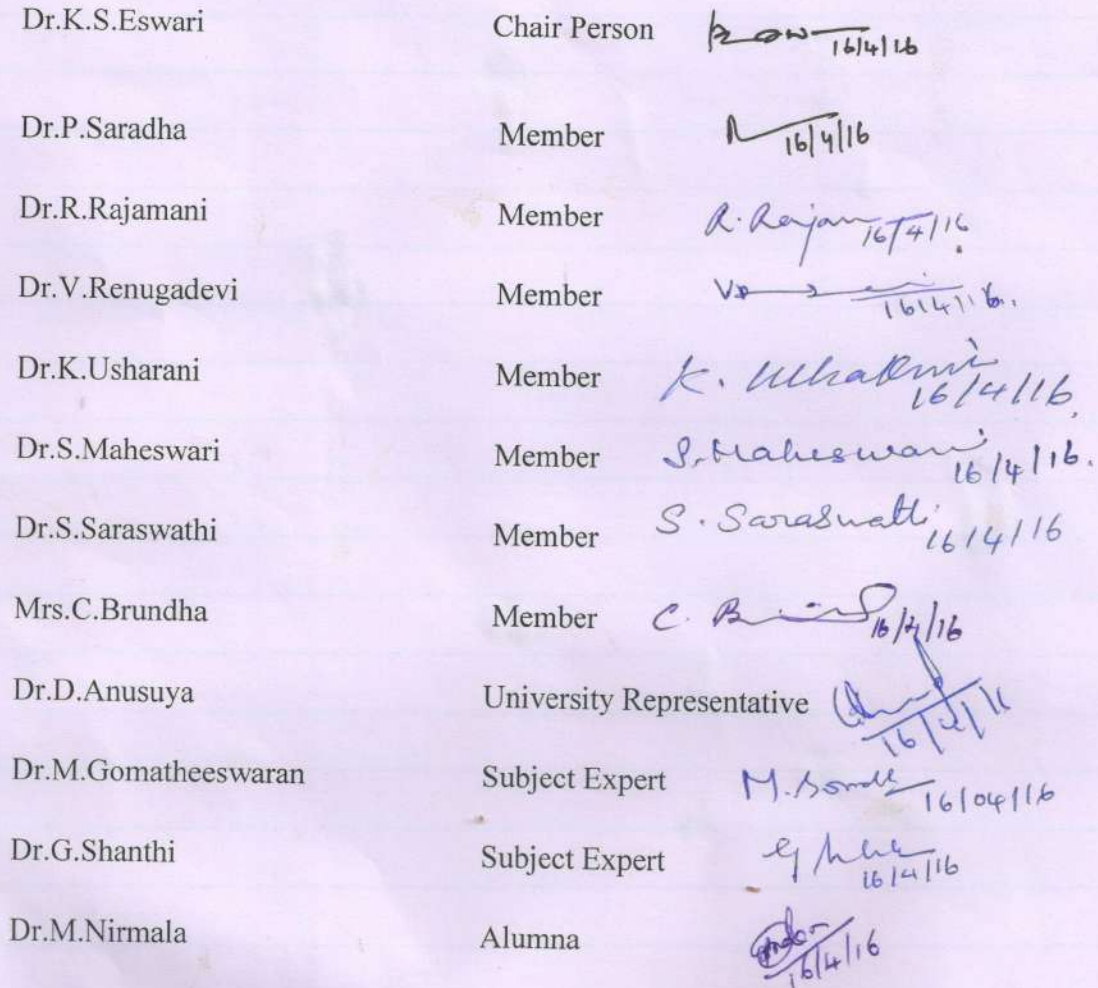 Dr.K.S.Eswari Chair Person 16/4/16
Dr.P.Saradha Member 16/4/16
Dr.R.Rajamani Member R. Rajam 16/4/16
Dr.V.Renugadevi Member 16/4/16.
Dr.K.Usharani Member K. Usharani 16/4/16.
Dr.S.Maheswari Member S. Maheswari 16/4/16.
Dr.S.Saraswathi Member S. Saraswathi 16/4/16
Mrs.C.Brundha Member C. 16/4/16
Dr.D.Anusuya University Representative
Dr.M.Gomatheeswaran Subject Expert 16/04/16
Dr.G.Shanthi Subject Expert 16/4/16
Dr.M.Nirmala Alumna 16/4/16